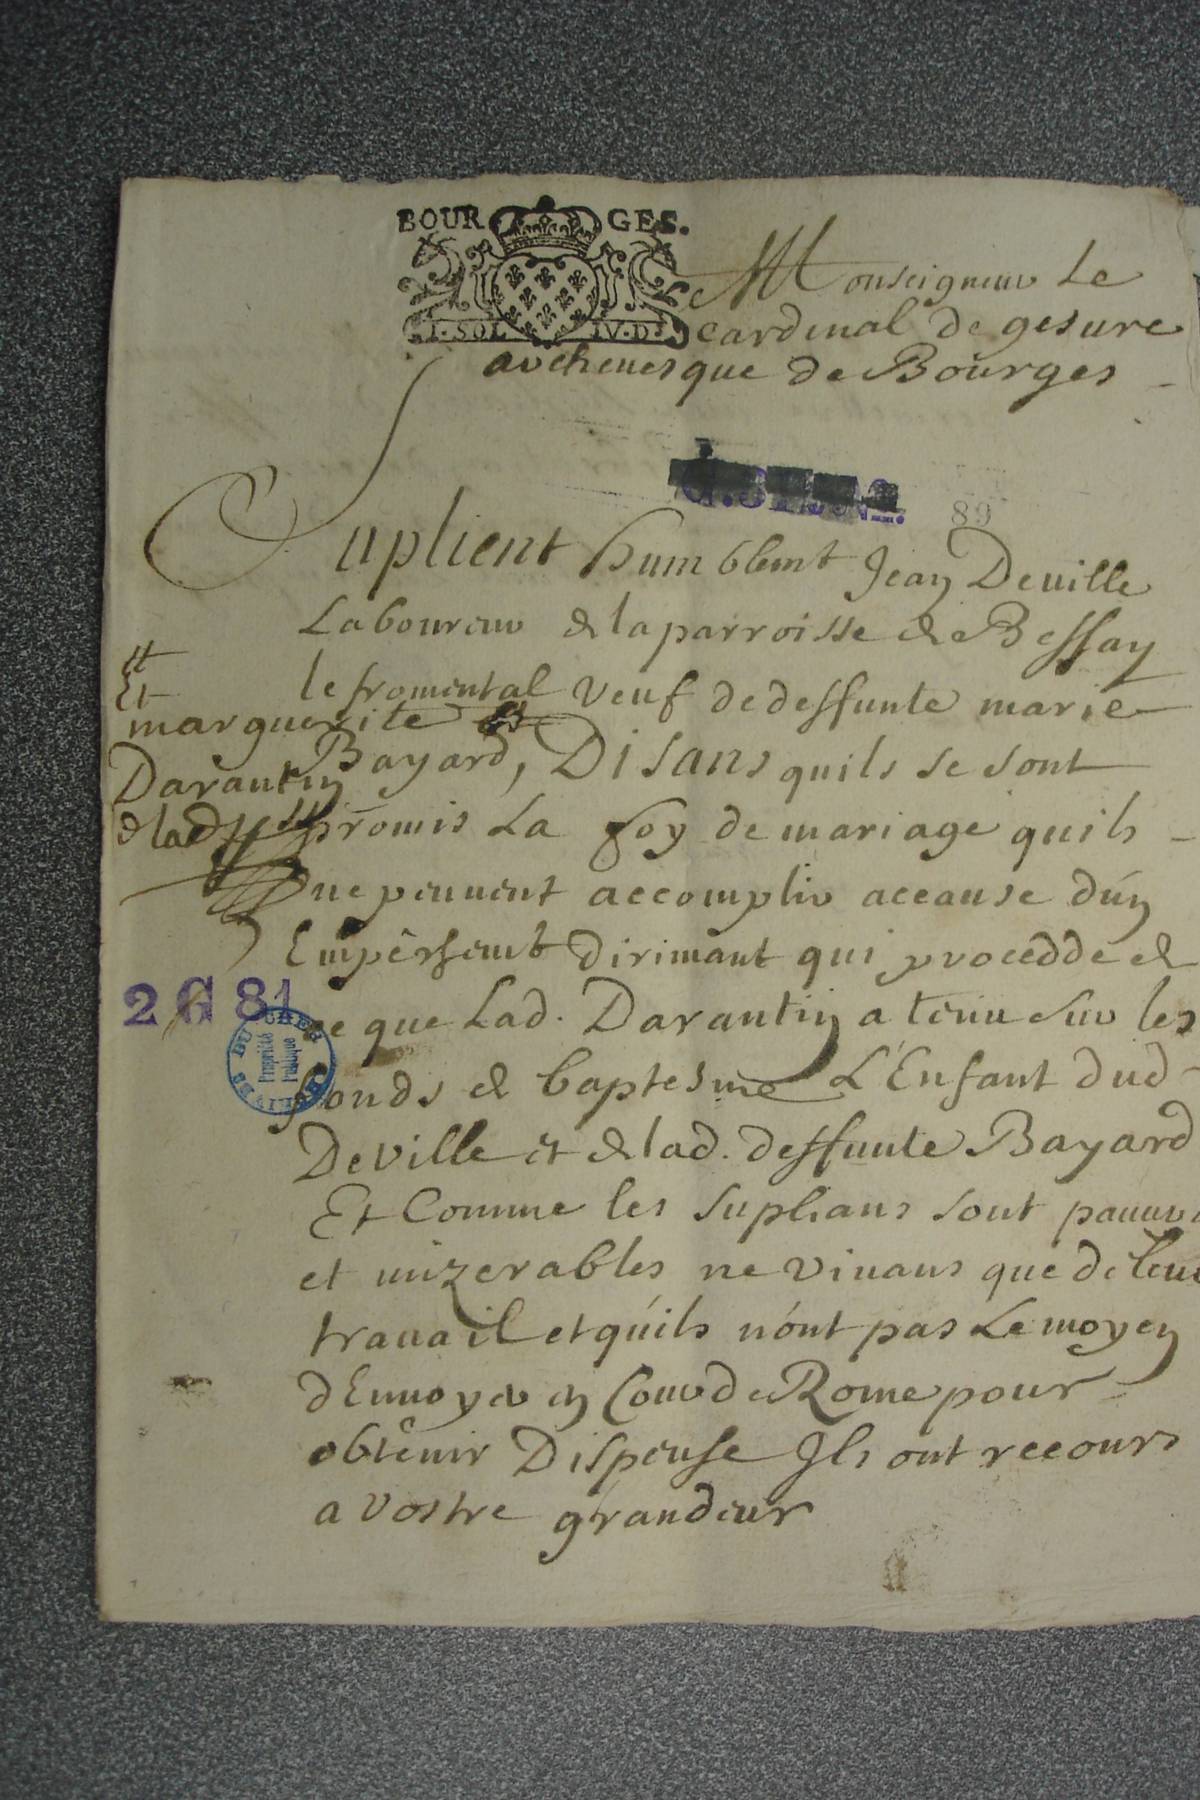 BOURGES.
I·SOL IV·D·
Monseigneur Le
cardinal de gesure
archeuesque de Bourges
89
Suplient humblemt Jean Deuille
Laboureur de la parroisse de Bessay
le fromental veuf de deffunte marie
Et
marguerite
Darantin
de lad
Bayard, Disans quils se sont
promis La foy de mariage quils
ne peuuent accomplir acause d'un
Empêschemt dirimant qui procedde de
ce que Lad. Darantin a tenu sur les
fonds de baptesme L'Enfant dud
Deville et de lad. deffunte Bayard
Et Comme les suplians sont pauures
et mizerables ne viuans que de leur
trauail et qu'ils n'ont pas Le moyen
d'Enuoyer en Cour de Rome pour
obtenir Dispense Ils ont recours
a vostre grandeur
2 G 81
Propriété
Publique